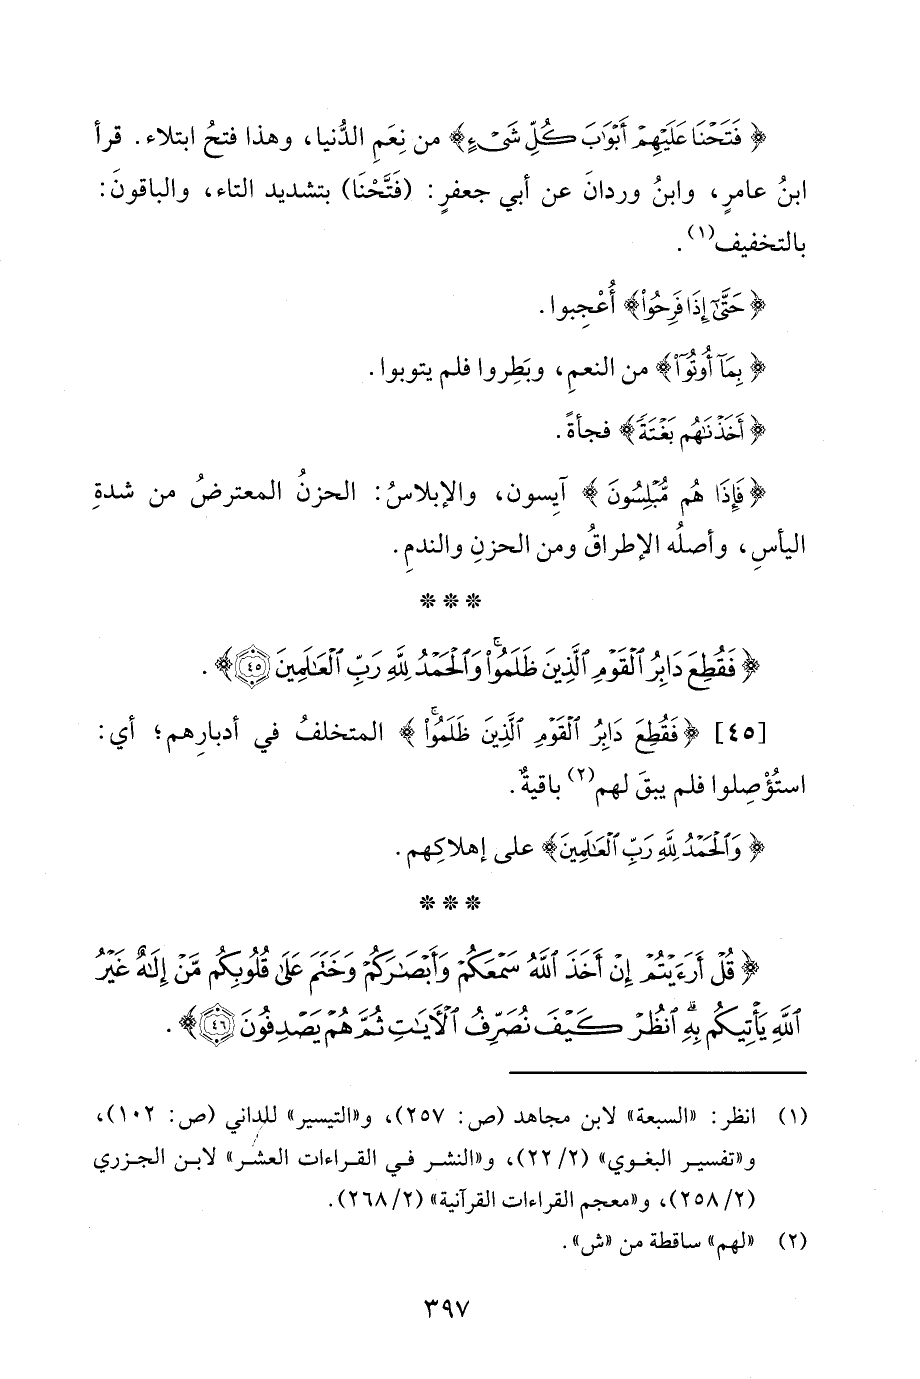 ﴿فَتَحْنَا عَلَيْهِمْ أَبْوَابَ كُلِّ شَيْءٍ﴾ من نِعَمِ الدُّنيا، وهذا فتحُ ابتلاء. قرأ
ابنُ عامرٍ، وابنُ وردانَ عن أبي جعفرٍ: (فَتَّحْنَا) بتشديد التاء، والباقونَ:
بالتخفيف(١).
﴿حَتَّىٰٓ إِذَا فَرِحُوا۟﴾ أُعْجِبوا.
﴿بِمَآ أُوتُوٓا۟﴾ من النعمِ، وبَطِروا فلم يتوبوا.
﴿أَخَذْنَٰهُم بَغْتَةً﴾ فجأةً.
﴿فَإِذَا هُم مُّبْلِسُونَ﴾ آيِسون، والإبلاسُ: الحزنُ المعترضُ من شدةِ
اليأسِ، وأصلُه الإطراقُ ومن الحزنِ والندمِ.
***
﴿فَقُطِعَ دَابِرُ ٱلْقَوْمِ ٱلَّذِينَ ظَلَمُوا۟ۚ وَٱلْحَمْدُ لِلَّهِ رَبِّ ٱلْعَٰلَمِينَ ٤٥﴾.
[٤٥] ﴿فَقُطِعَ دَابِرُ ٱلْقَوْمِ ٱلَّذِينَ ظَلَمُوا۟ۚ﴾ المتخلفُ في أدبارِهم؛ أي:
استُؤْصِلوا فلم يبقَ لهم(٢) باقيةٌ.
﴿وَٱلْحَمْدُ لِلَّهِ رَبِّ ٱلْعَٰلَمِينَ﴾ على إهلاكِهم.
***
﴿قُلْ أَرَءَيْتُمْ إِنْ أَخَذَ ٱللَّهُ سَمْعَكُمْ وَأَبْصَٰرَكُمْ وَخَتَمَ عَلَىٰ قُلُوبِكُم مَّنْ إِلَٰهٌ غَيْرُ
ٱللَّهِ يَأْتِيكُم بِهِۗ ٱنظُرْ كَيْفَ نُصَرِّفُ ٱلْءَايَٰتِ ثُمَّ هُمْ يَصْدِفُونَ ٤٦﴾.
(١) انظر: «السبعة» لابن مجاهد (ص: ٢٥٧)، و«التيسير» للداني (ص: ١٠٢)،
و«تفسير البغوي» (٢/ ٢٢)، و«النشر في القراءات العشر» لابن الجزري
(٢/ ٢٥٨)، و«معجم القراءات القرآنية» (٢/ ٢٦٨).
(٢) «لهم» ساقطة من «ش».
٣٩٧